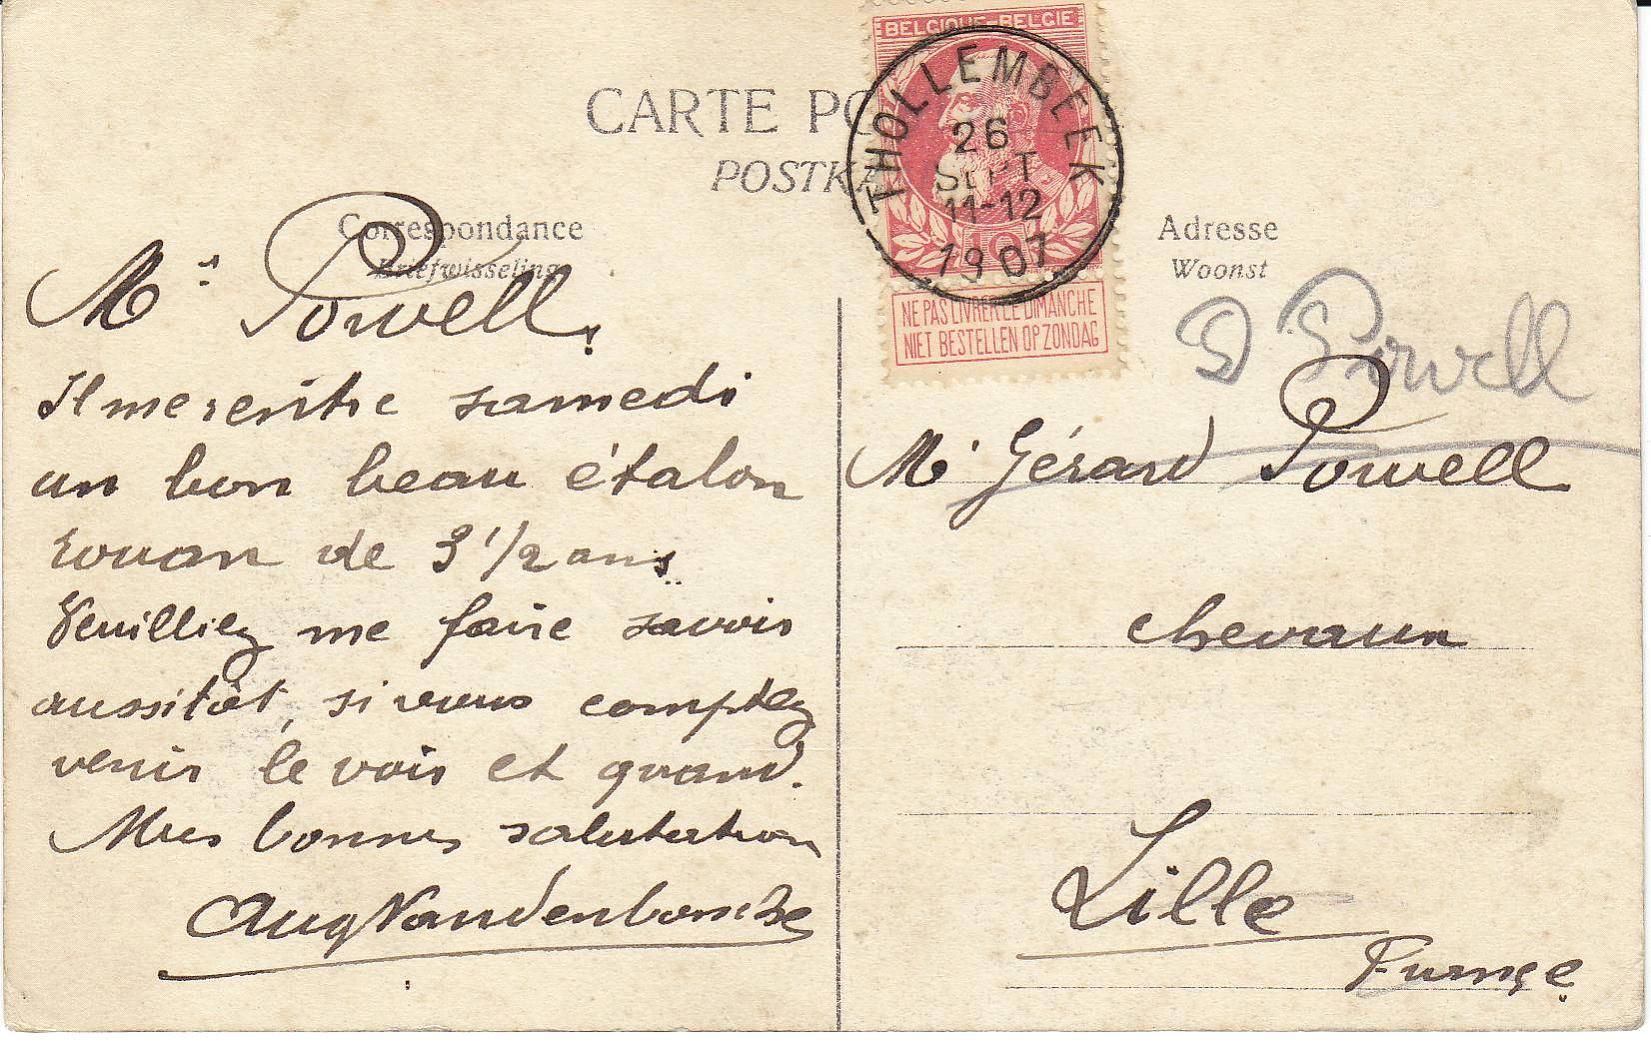 BELGIQUE-BELGIE
THOLLEMBEEK
26
SEPT
11-12
1907
NE PAS LIVRER LE DIMANCHE
NIET BESTELLEN OP ZONDAG
CARTE PO
POSTKA
Correspondance
Briefwisseling
Mr Powell,
Il me rentre samedi
un bon beau étalon
rouan de 3 1/2 ans
Veuilliez me faire savoir
aussitôt, si vous comptez
venir le voir et quand.
Mes bonnes salutation
Aug Vandenbossche
Adresse
Woonst
Powell
Mr Gérard Powell
chevaux
Lille
France